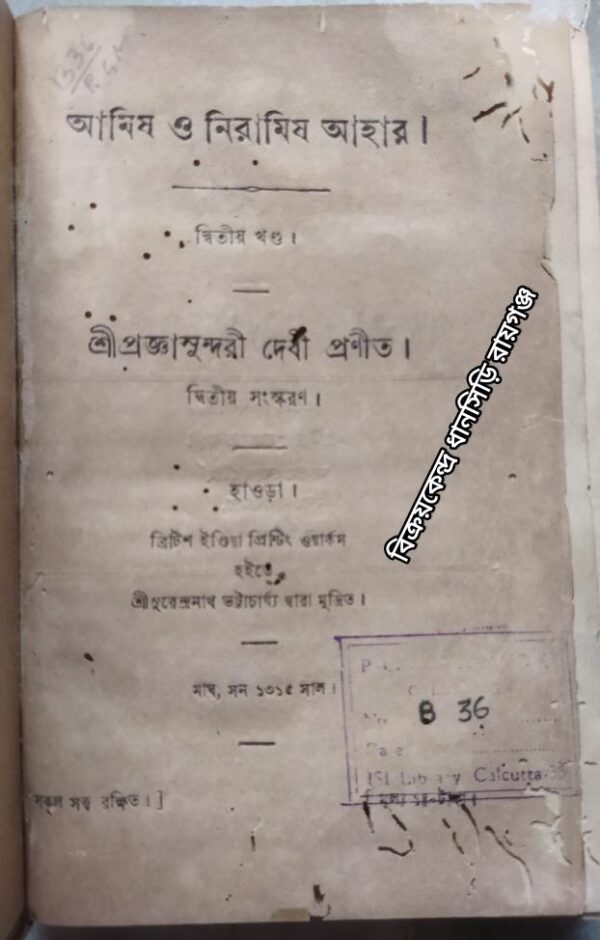 আমিষ ও নিরামিষ আহার।
দ্বিতীয় খণ্ড।
শ্রীপ্রজ্ঞাসুন্দরী দেবী প্রণীত।
দ্বিতীয় সংস্করণ।
হাওড়া।
ব্রিটিশ ইণ্ডিয়া প্রিন্টিং ওয়ার্কস
হইতে
শ্রীসুরেন্দ্রনাথ ভট্টাচার্য্য দ্বারা মুদ্রিত।
মাঘ, সন ১৩১৫ সাল।
সকল সত্ত্ব রক্ষিত। ]
[ মূল্য
বিক্রয়কেন্দ্র ধানসিড়ি রায়গঞ্জ
No. B 36
Date
ISI Library Calcutta-35